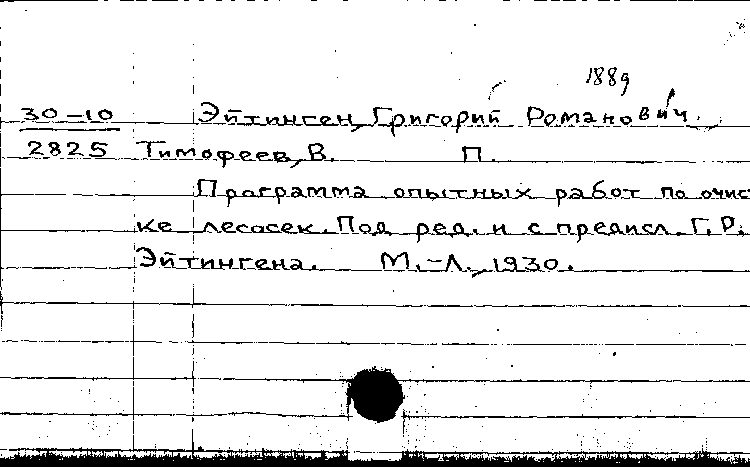 1889
30-10 Эйтинген, Григорий Романович.
2825 Тимофеев, В. П.
Программа опытных работ по очист
ке лесосек. Под ред. и с предисл. Г. Р.
Эйтингена. М.-Л., 1930.